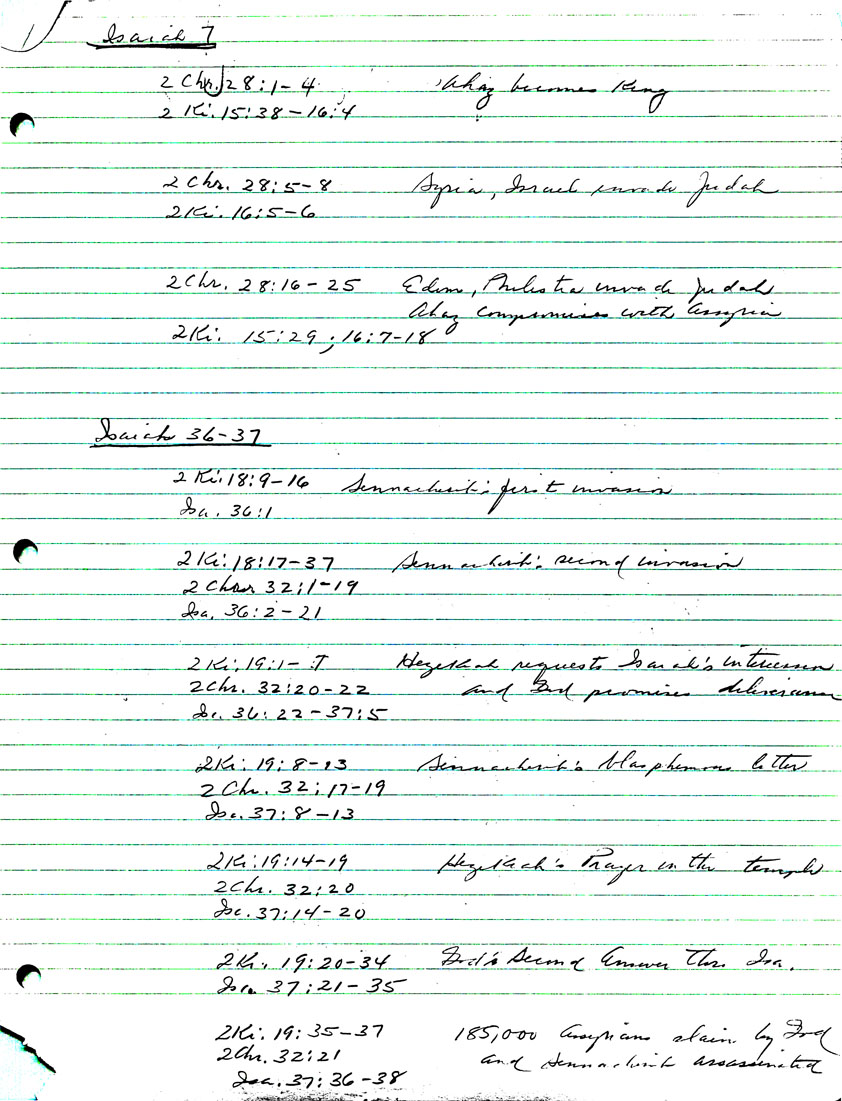 1
Isaiah 7
2 Chr. 28:1-4 Ahaz becomes King
2 Ki. 15:38-16:4
2 Chr. 28:5-8 Syria, Israel invade Judah
2 Ki. 16:5-6
2 Chr. 28:16-25 Edom, Philistia invade Judah
Ahaz compromises with Assyria
2 Ki. 15:29; 16:7-18
Isaiah 36-37
2 Ki. 18:9-16 Sennacherib's first invasion
Isa. 36:1
2 Ki. 18:17-37 Sennacherib's second invasion
2 Chr 32:1-19
Isa. 36:2-21
2 Ki. 19:1-7 Hezekiah requests Isaiah's intercession
2 Chr. 32:20-22 and God promises deliverance
Is. 36:22-37:5
2 Ki. 19:8-13 Sennacherib's blasphemous letter
2 Chr. 32:17-19
Isa. 37:8-13
2 Ki. 19:14-19 Hezekiah's Prayer in the temple
2 Chr. 32:20
Isa. 37:14-20
2 Ki. 19:20-34 God's Second Answer thru Isa.
Isa 37:21-35
2 Ki. 19:35-37 185,000 Assyrians slain by God
2 Chr. 32:21 and Sennacherib assassinated
Isa. 37:36-38